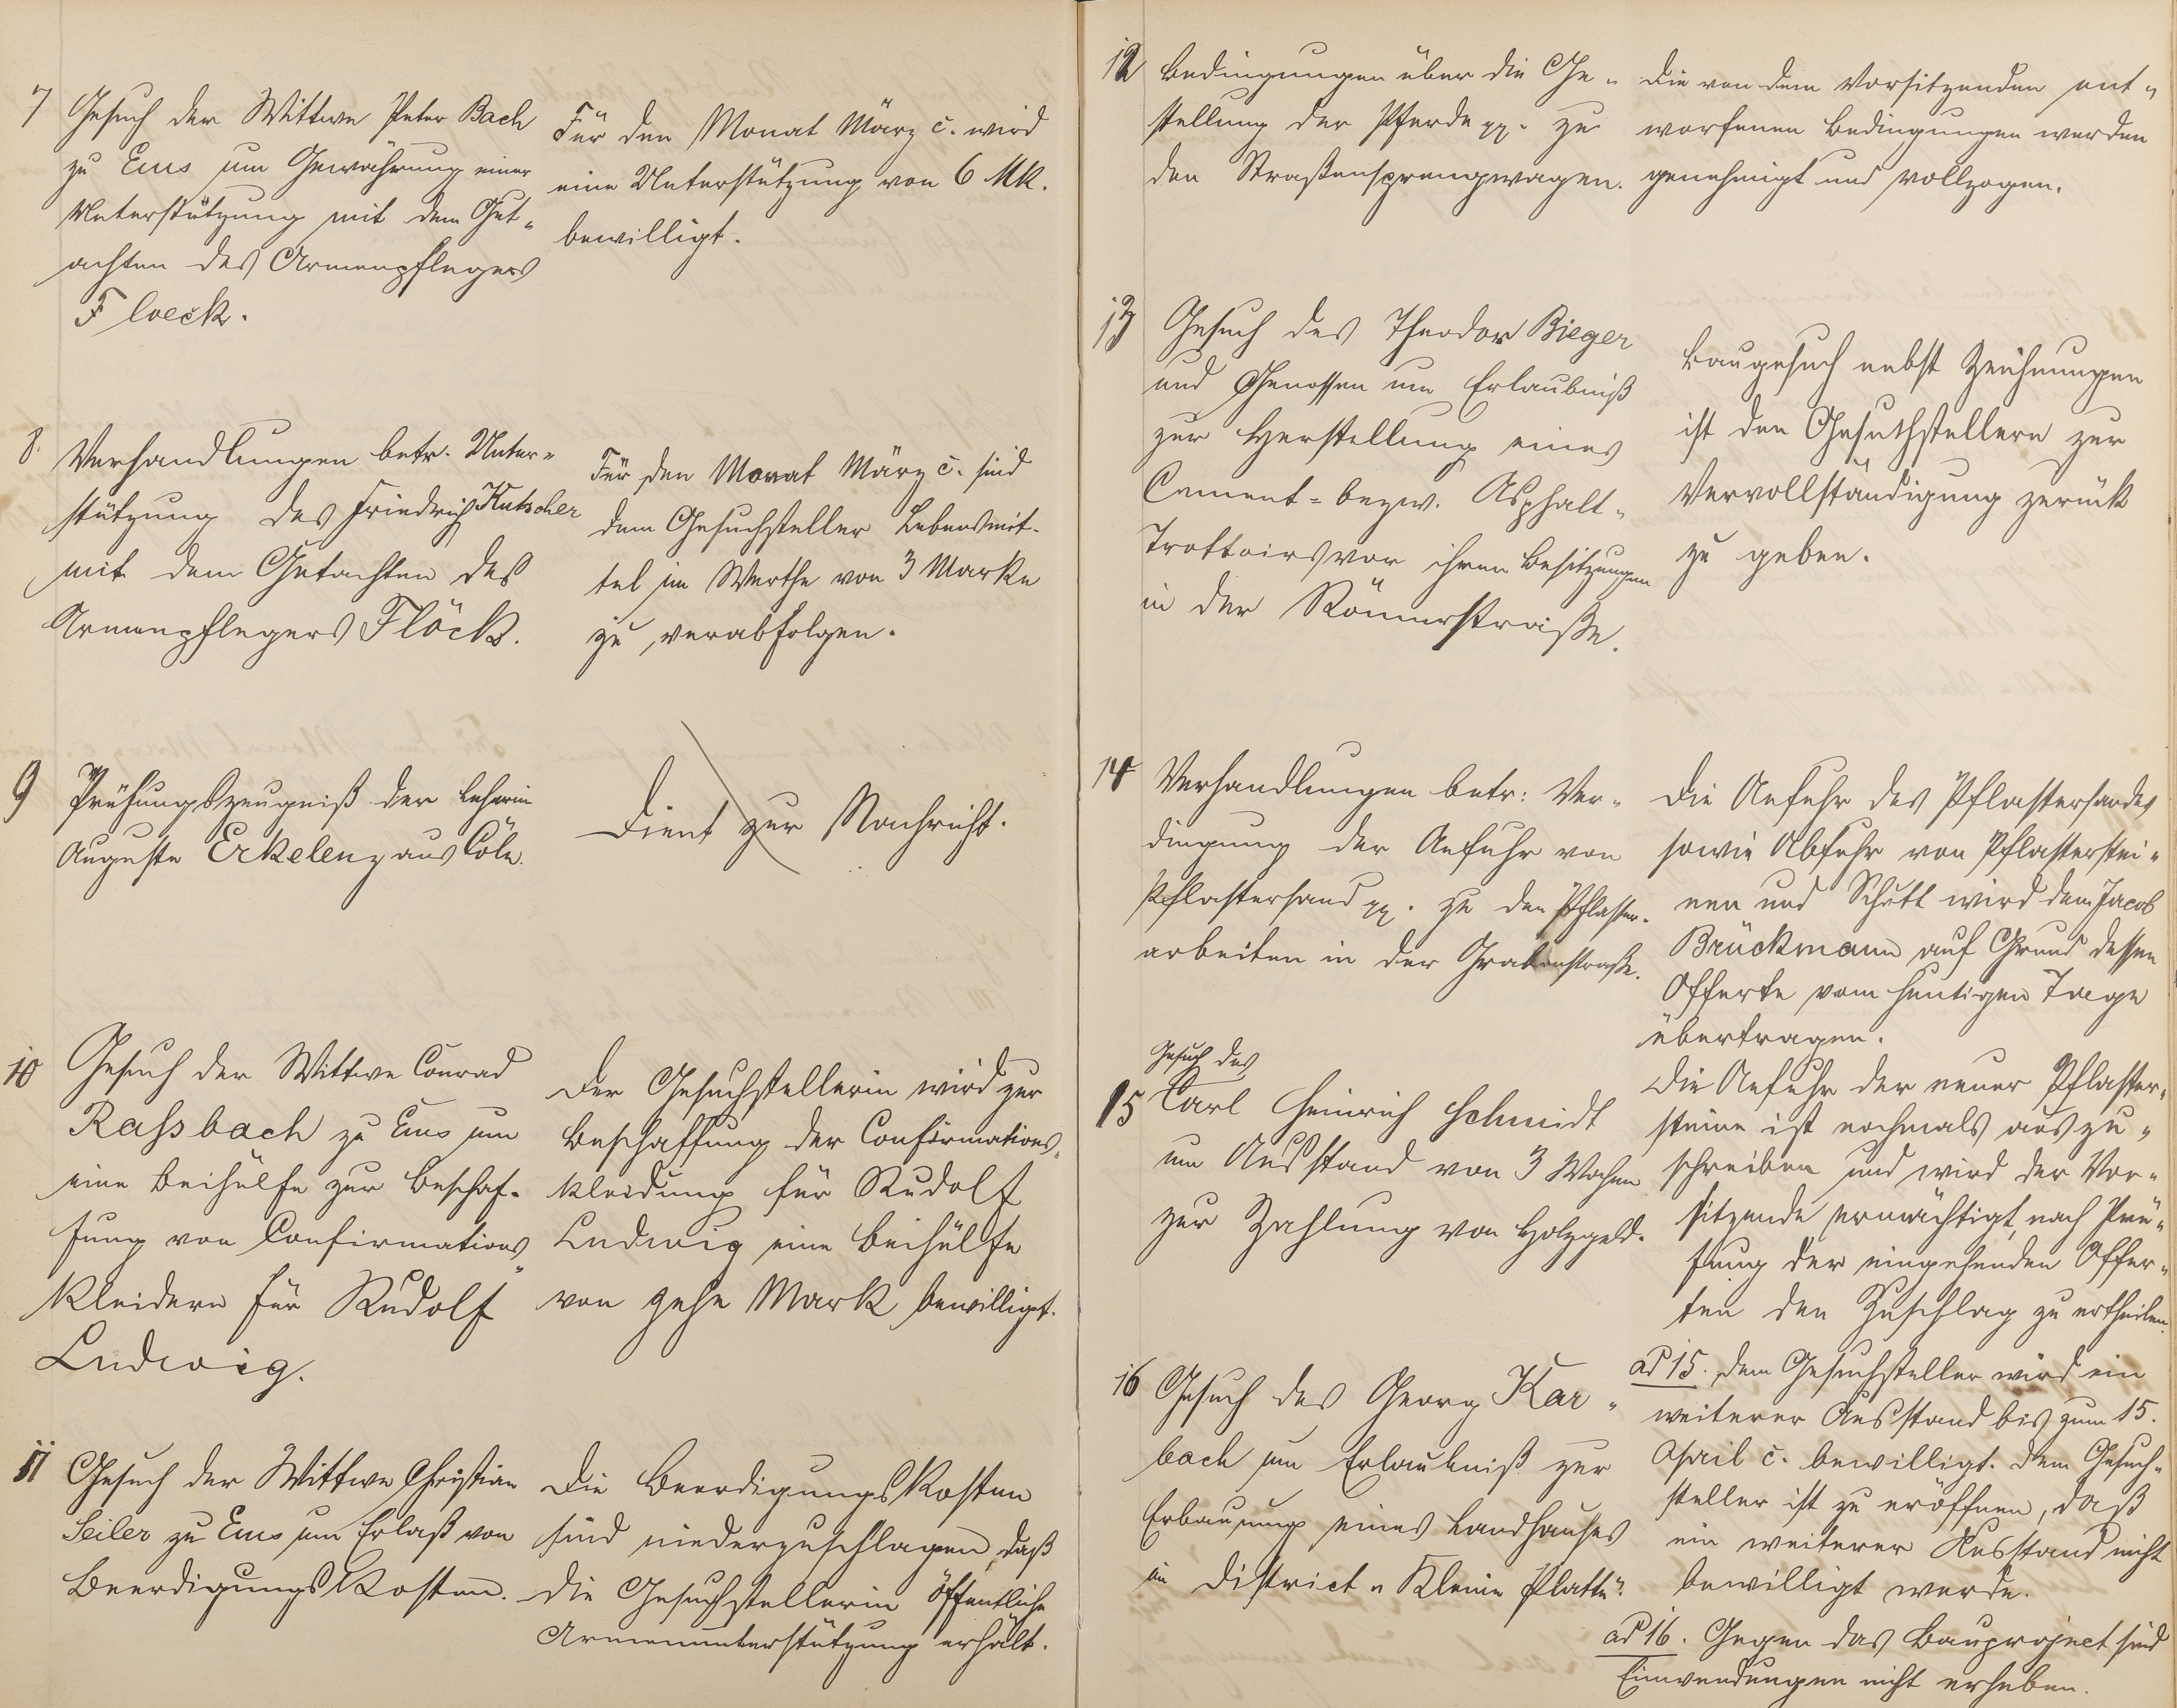 7 Gesuch der Wittwe Peter Bach
zu Ems um Gewährung einer
Unterstützung mit dem Gut-
achten des Armenpflegers
Floeck.
Für den Monat März c. wird
eine Unterstützung von 6 Mk.
bewilligt.
8. Verhandlungen betr. Unter-
stützung des Friedrich Kutscher
mit dem Gutachten des
Armenpflegers Flöck.
Für den Monat März c. sind
dem Gesuchsteller Lebensmit-
tel im Werthe von 3 Marke
zu verabfolgen.
9 Prüfungszeugniß der Lehrerin
Auguste Erkelenz aus Cöln.
Dient zur Nachricht.
10 Gesuch der Wittwe Conrad
Rassbach zu Ems um
eine Beihülfe zur Beschaf-
fung von Confirmations-
kleidern für Rudolf
Ludwig.
Der Gesuchstellerin wird zur
Beschaffung der Confirmations-
kleidung für Rudolf
Ludwig eine Beihülfe
von zehn Mark bewilligt.
11 Gesuch der Wittwe Christian
Seiler zu Ems um Erlaß von
Beerdigungskosten.
Die Beerdigungskosten
sind niederzuschlagen, daß
die Gesuchstellerin öffentliche
Armenunterstützung erhält.
12 Bedingungen über die Ge-
stellung der Pferde pp. zu
den Straßensprengwagen.
Die von dem Vorsitzenden ent-
worfenen Bedingungen werden
genehmigt und vollzogen.
13 Gesuch des Theodor Bieger
und Genossen um Erlaubniß
zur Herstellung eines
Cement- bezw. Asphalt-
Trottoirs vor ihren Besitzungen
in der Römerstraße.
Baugesuch nebst Zeichnungen
ist den Gesuchstellern zur
Vervollständigung zurück
zu geben.
14 Verhandlungen betr: Ver-
dingung der Anfuhr von
Pflastersand pp. zu den Pflaster-
arbeiten in der Grabenstraße.
Die Anfuhr des Pflastersandes
sowie Abfuhr von Pflasterstei-
nen und Schutt wird dem Jacob
Brückmann auf Grund dessen
Offerte vom heutigen Tage
übertragen.
Die Anfuhr der neuer Pflaster-
steine ist nochmals auszu-
schreiben und wird der Vor-
sitzende ermächtigt, nach Prü-
fung der eingehenden Offer-
ten den Zuschlag zu ertheilen.
Gesuch des
15 Carl Heinrich Schmidt
um Ausstand von 3 Wochen
zur Zahlung von Holzgeld.
ad 15. Dem Gesuchsteller wird ein
weiterer Ausstand bis zum 15.
April c. bewilligt. Dem Gesuch-
steller ist zu eröffnen, daß
ein weiterer Ausstand nicht
bewilligt werde.
16 Gesuch des Georg Kar-
bach um Erlaubniß zur
Erbauung eines Landhauses
im District „Kleine Platte".
ad 16. Gegen das Bauproject sind
Einwendungen nicht erhoben.